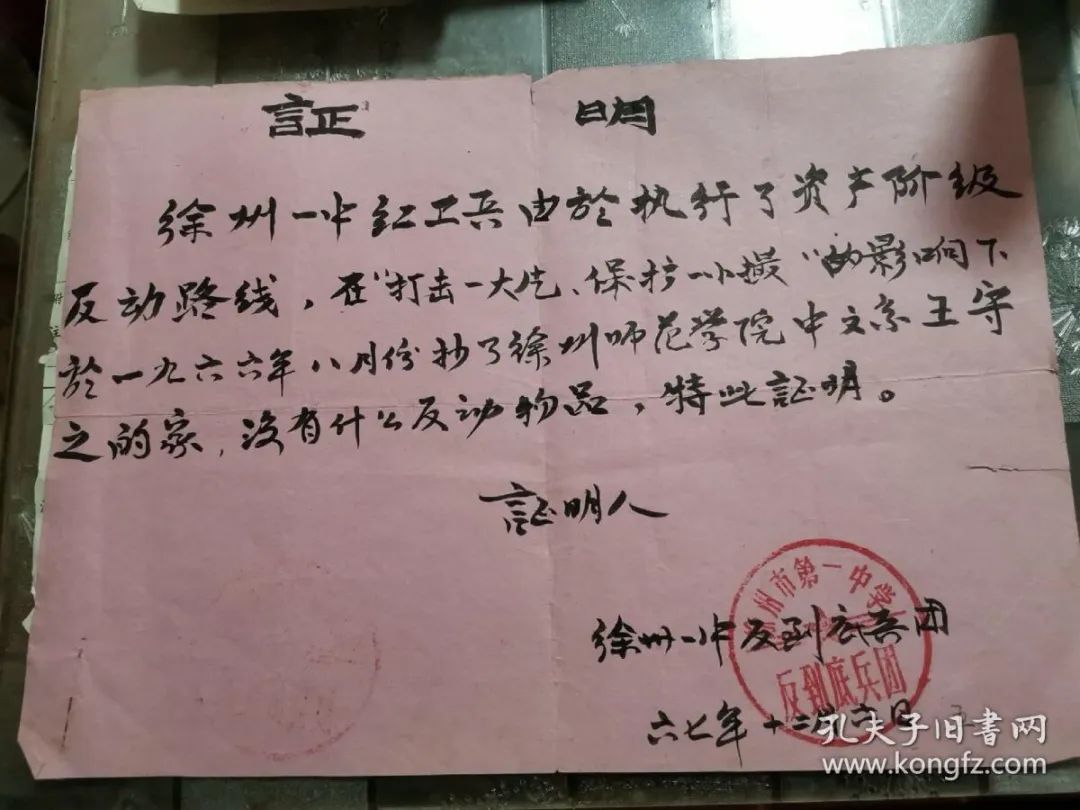 証 明
徐州一中红工兵由於执行了资产阶级
反动路线，在"打击一大片、保护一小撮"的影响下
於一九六六年八月份抄了徐州师范学院中文系王守
之的家，没有什么反动物品，特此証明。
証明人
徐州市第一中学
徐州一中反到底兵团
反到底兵团
六七年十二月六日
孔夫子旧书网
www.kongfz.com